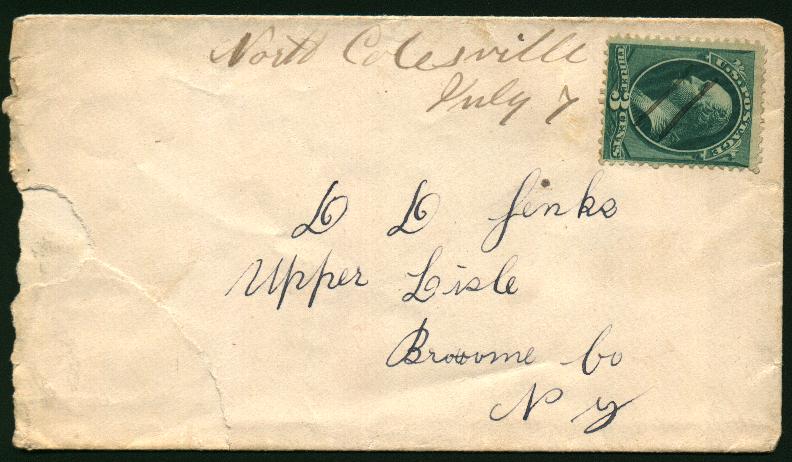 North Colesville
July 7
U.S. POSTAGE
3
THREE CENTS
L L Jenks
Upper Lisle
Broome Co
N Y